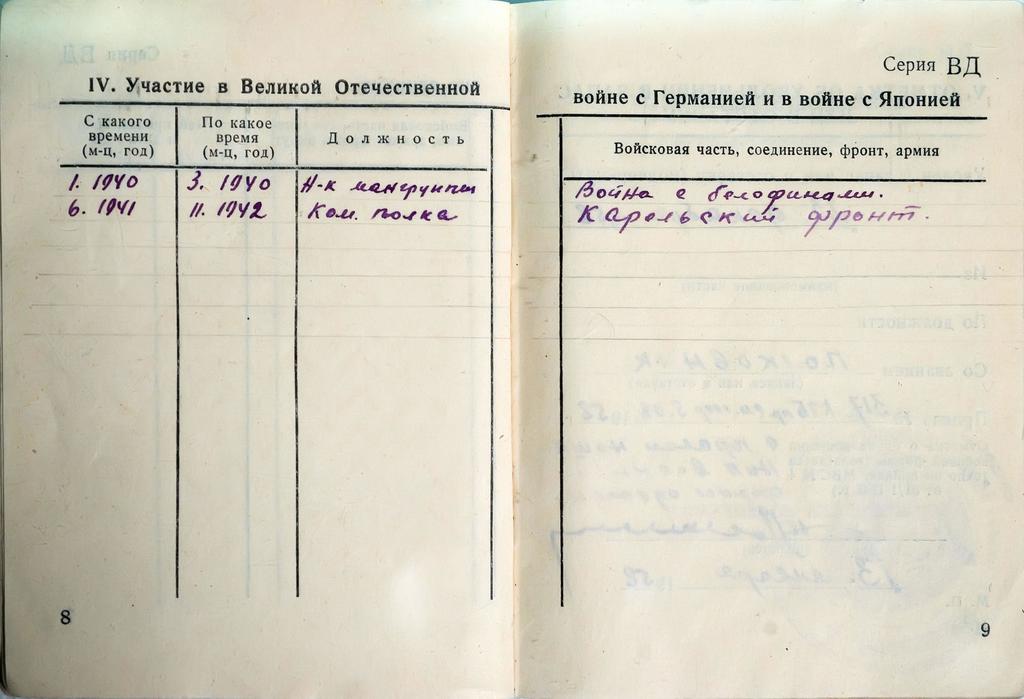 IV. Участие в Великой Отечественной
С какого времени (м-ц, год)
По какое время (м-ц, год)
Должность
1. 1940 3. 1940 Н-к мангруппы
6. 1941 11. 1942 Ком. полка
8
Серия ВД
войне с Германией и в войне с Японией
Войсковая часть, соединение, фронт, армия
Война с белофинами.
Карельский фронт.
9